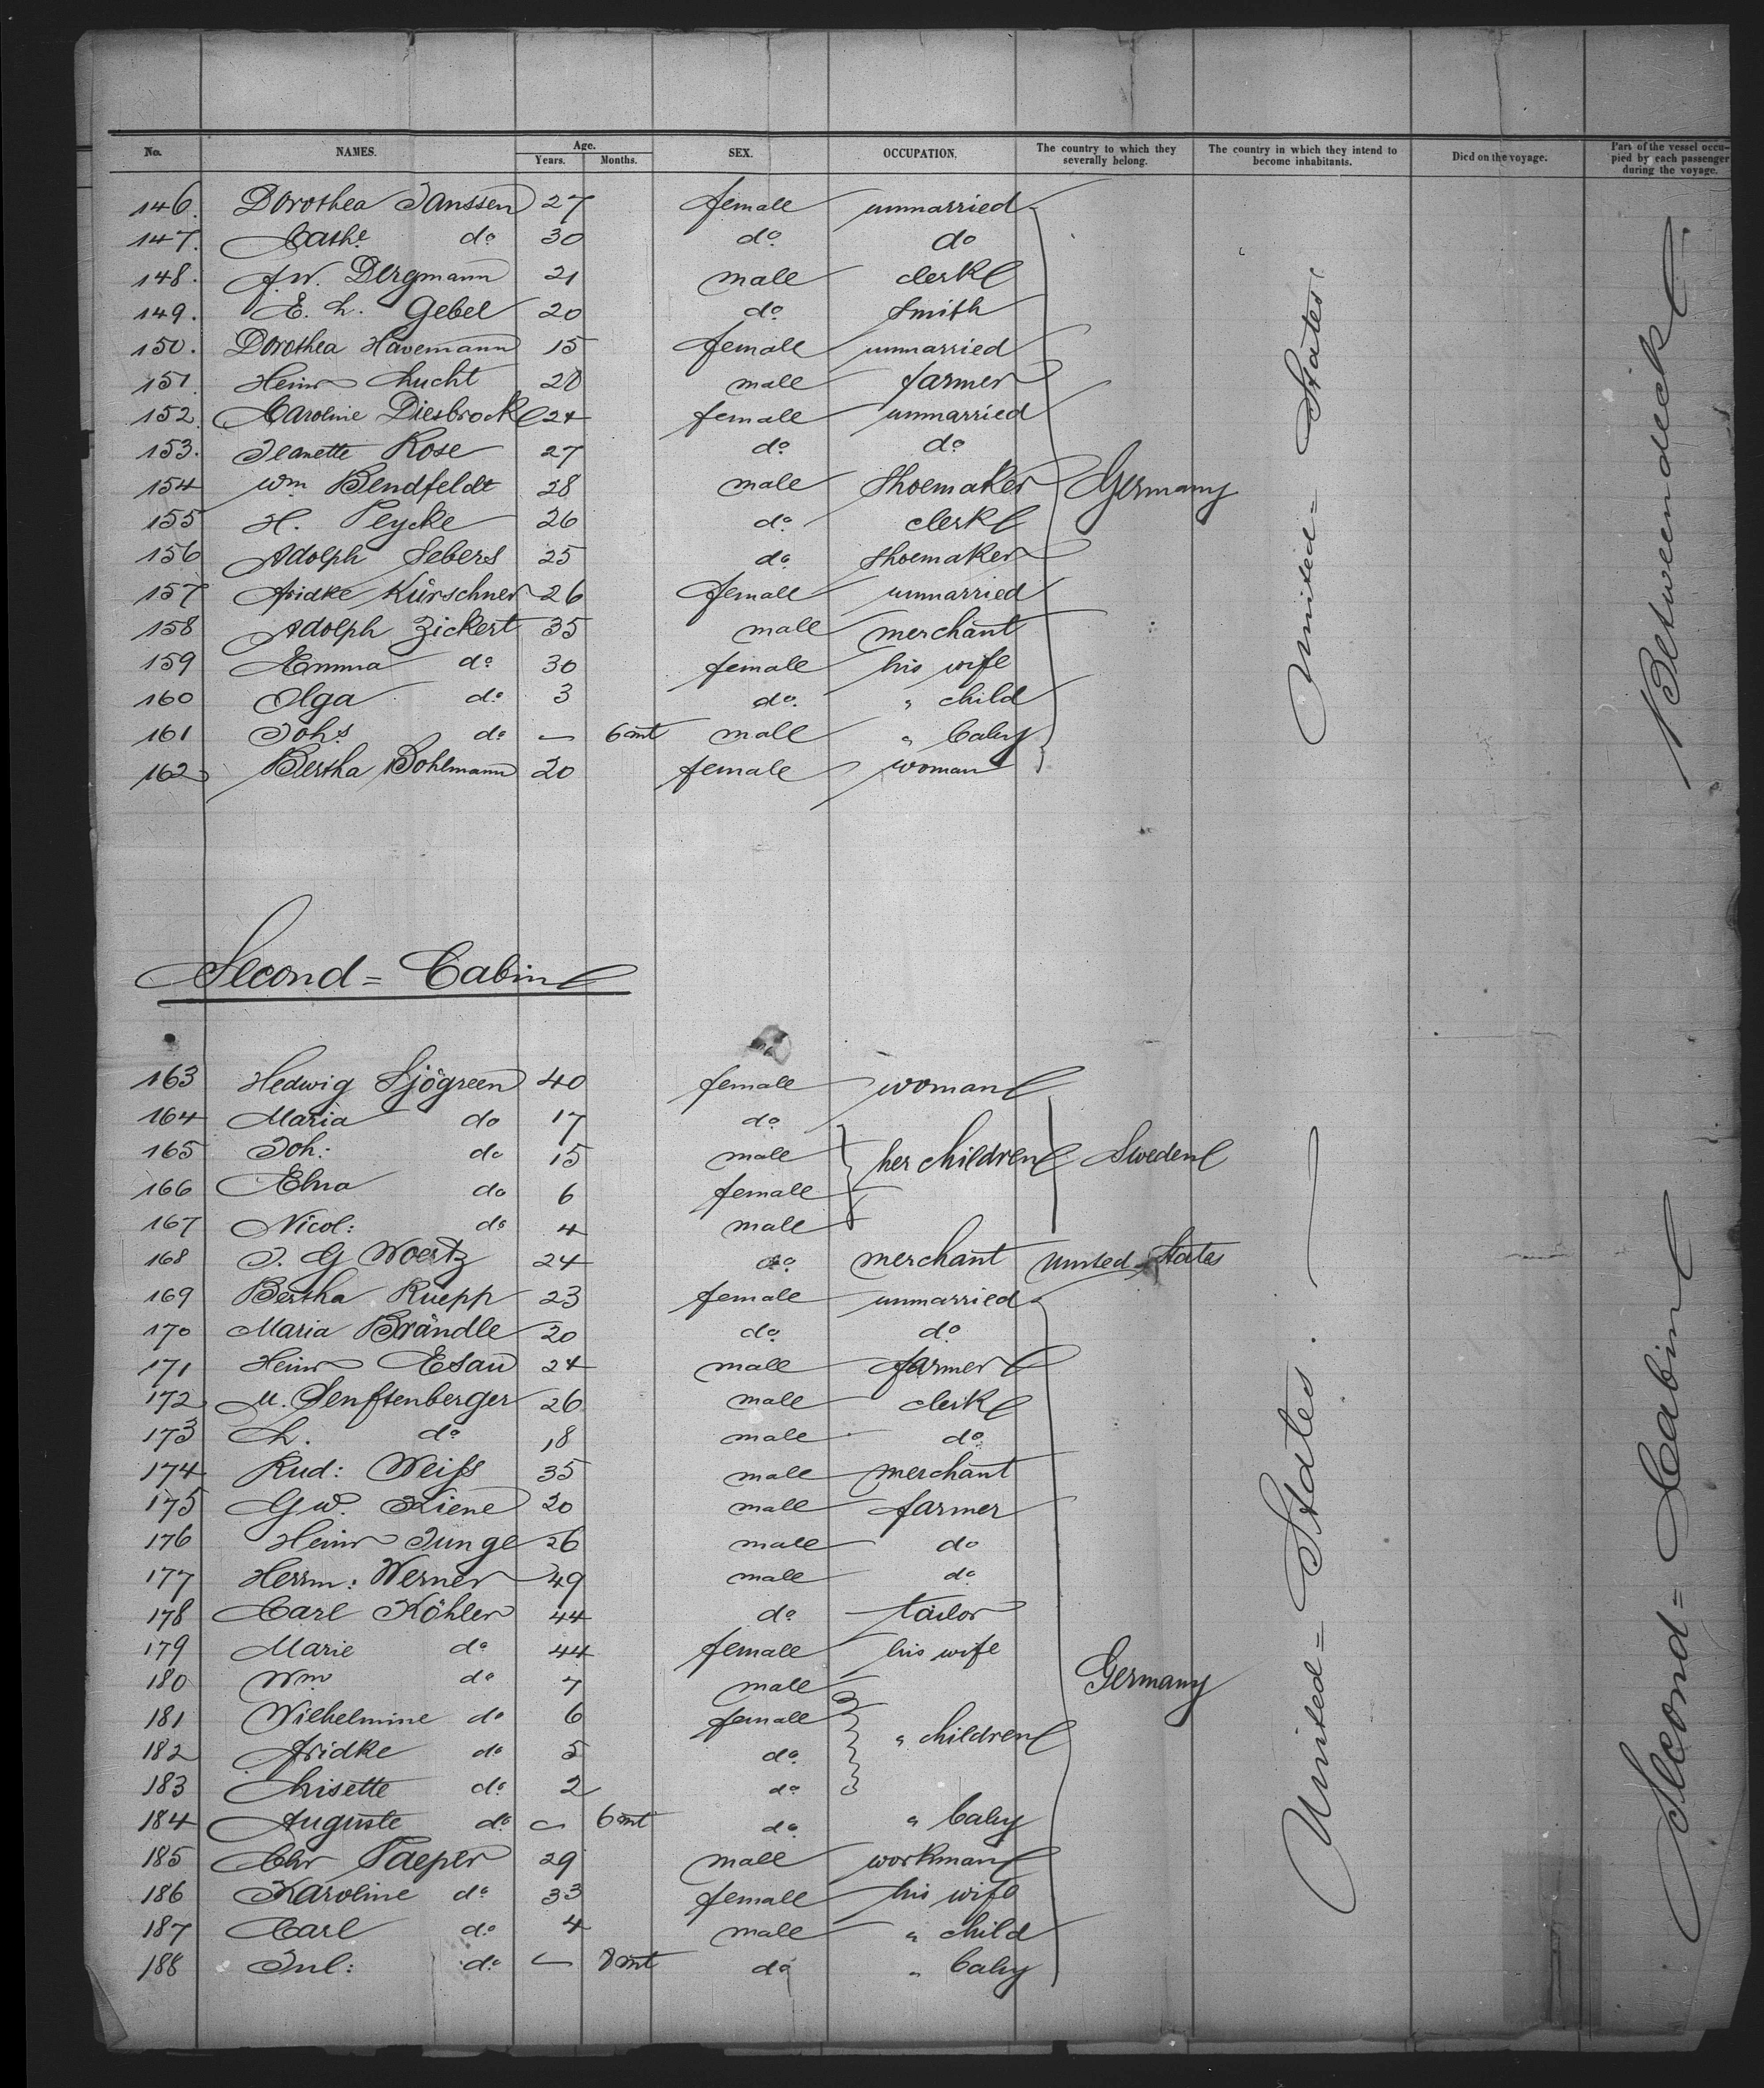 No. NAMES. Age. Years. Months. SEX. OCCUPATION. The country to which they severally belong. The country in which they intend to become inhabitants. Died on the voyage. Part of the vessel occupied by each passenger during the voyage.
146. Dorothea Janssen 27 female unmarried
147. Cathe do 30 do do
148. F. W. Bergmann 21 male clerk
149. E. L. Gebel 20 do Smith
150. Dorothea Havemann 15 female unmarried
151 Heinr Lucht 20 male farmer
152. Caroline Diesbrock 24 female unmarried
153. Jeanette Rose 27 do do
154 Wm Bendfeldt 28 male Shoemaker Germany
155 H. Peycke 26 do clerk
156 Adolph Sebers 25 do shoemaker
157 Fridke Kürschner 26 female unmarried
158 Adolph Zickert 35 male merchant
159 Emma do 30 female his wife
160 Olga do 3 do " child
161 Johs do — 6 mt male " baby
162 Bertha Bohlmann 20 female woman
United = States
Betweendeck
Second = Cabin
163 Hedwig Sjögreen 40 female woman
164 Maria do 17 do
165 Joh: do 15 male her children Sweden
166 Elna do 6 female
167 Nicol: do 4 male
168 J. G Woertz 24 do merchant United States
169 Bertha Ruepp 23 female unmarried
170 Maria Brändle 20 do do
171 Heinr Esau 24 male farmer
172 M. Senftenberger 26 male clerk
173 L. do 18 male do
174 Rud: Weiss 35 male merchant
175 G W. Kiene 20 male farmer
176 Heinr Junge 26 male do
177 Herrm: Werner 49 male do
178 Carl Köhler 44 do tailor
179 Marie do 44 female his wife
180 Wm do 7 male Germany
181 Wilhelmine do 6 female " children
182 Fridke do 5 do
183 Lisette do 2 do
184 Auguste do — 6 mt do " baby
185 Chr Paeper 29 male workman
186 Karoline do 33 female his wife
187 Carl do 4 male " child
188 Jul: do — 8 mt do " baby
United = States.
Second = Cabin